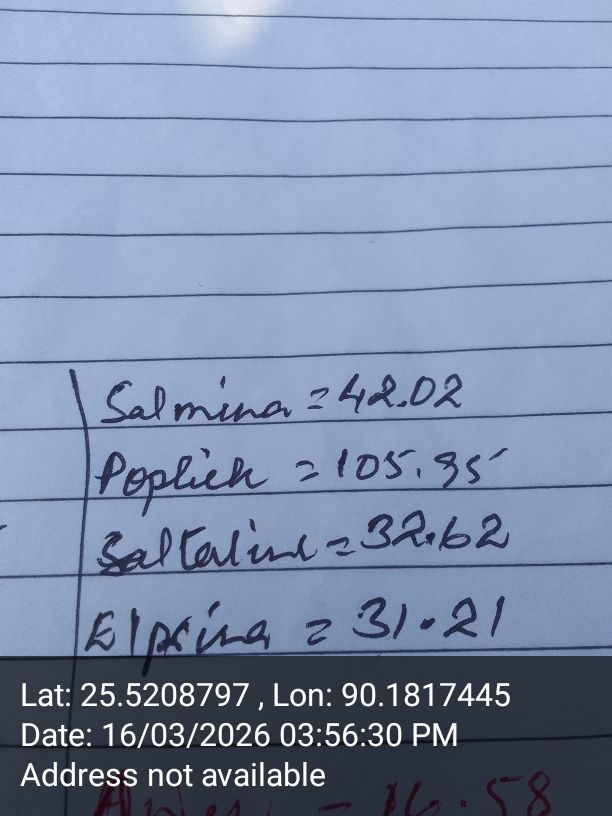 Salmina = 42.02
Poplick = 105.95
Saltaline = 32.62
Elpsina = 31.21
Lat: 25.5208797 , Lon: 90.1817445
Date: 16/03/2026 03:56:30 PM
Address not available
= 16.58